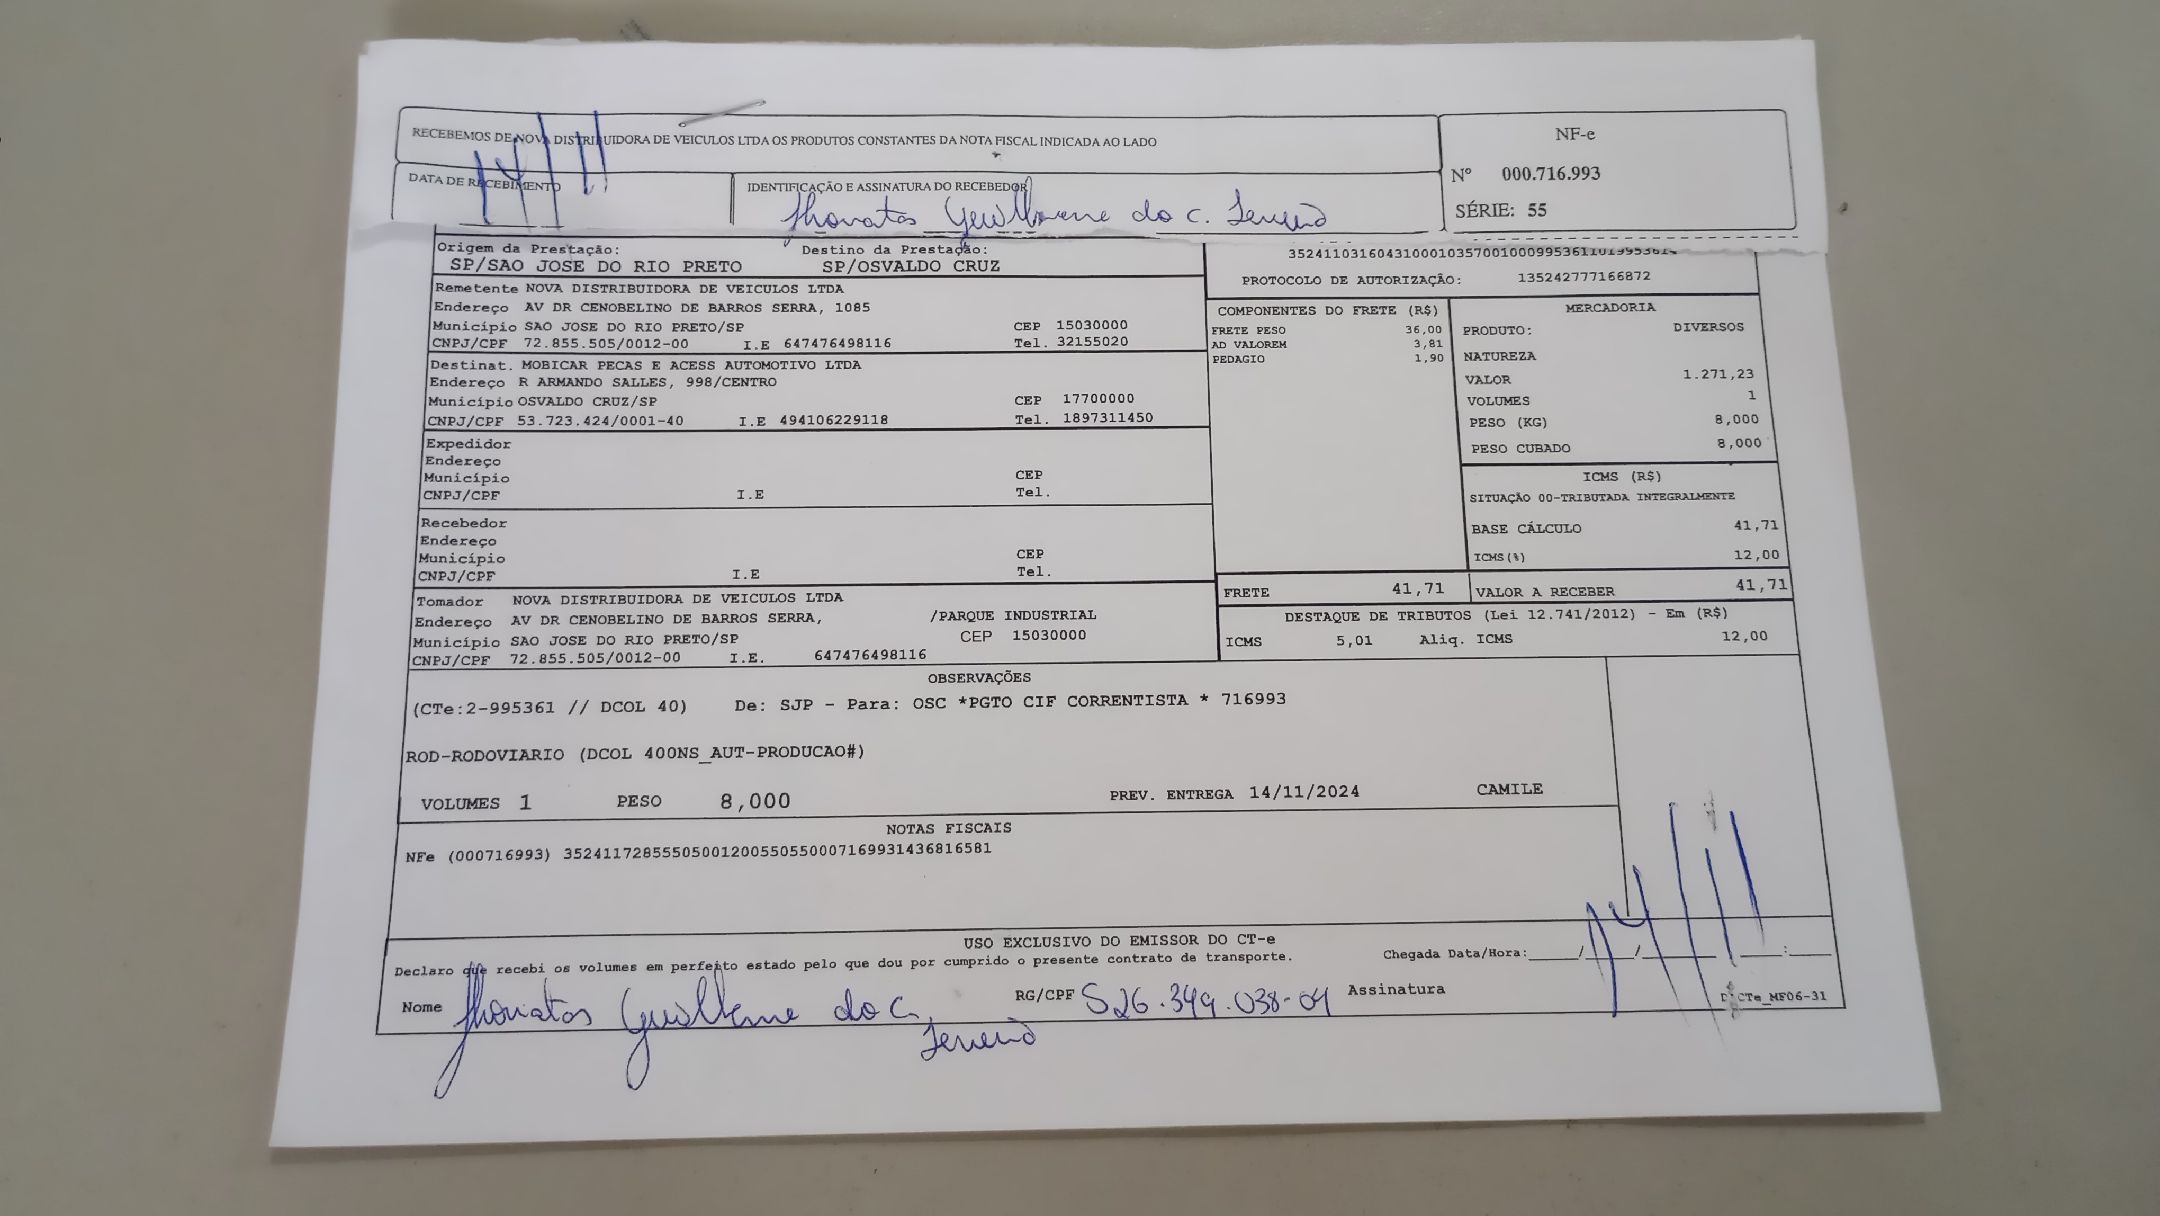 RECEBEMOS DE NOVA DISTRIBUIDORA DE VEICULOS LTDA OS PRODUTOS CONSTANTES DA NOTA FISCAL INDICADA AO LADO
NF-e
Nº 000.716.993
SÉRIE: 55
DATA DE RECEBIMENTO
14/11
IDENTIFICAÇÃO E ASSINATURA DO RECEBEDOR
Jhonatas Guilherme do C.
Origem da Prestação: Destino da Prestação:
SP/SAO JOSE DO RIO PRETO SP/OSVALDO CRUZ
PROTOCOLO DE AUTORIZAÇÃO: 135242777166872
Remetente NOVA DISTRIBUIDORA DE VEICULOS LTDA
Endereço AV DR CENOBELINO DE BARROS SERRA, 1085
Município SAO JOSE DO RIO PRETO/SP CEP 15030000
CNPJ/CPF 72.855.505/0012-00 I.E 647476498116 Tel. 32155020
Destinat. MOBICAR PECAS E ACESS AUTOMOTIVO LTDA
Endereço R ARMANDO SALLES, 998/CENTRO
Município OSVALDO CRUZ/SP CEP 17700000
CNPJ/CPF 53.723.424/0001-40 I.E 494106229118 Tel. 1897311450
Expedidor
Endereço
Município CEP
CNPJ/CPF I.E Tel.
Recebedor
Endereço
Município CEP
CNPJ/CPF I.E Tel.
Tomador NOVA DISTRIBUIDORA DE VEICULOS LTDA
Endereço AV DR CENOBELINO DE BARROS SERRA, /PARQUE INDUSTRIAL
Município SAO JOSE DO RIO PRETO/SP CEP 15030000
CNPJ/CPF 72.855.505/0012-00 I.E. 647476498116
COMPONENTES DO FRETE (R$)
FRETE PESO 36,00
AD VALOREM 3,81
PEDAGIO 1,90
MERCADORIA
PRODUTO: DIVERSOS
NATUREZA
VALOR 1.271,23
VOLUMES 1
PESO (KG) 8,000
PESO CUBADO 8,000
ICMS (R$)
SITUAÇÃO 00-TRIBUTADA INTEGRALMENTE
BASE CÁLCULO 41,71
ICMS(%) 12,00
FRETE 41,71 VALOR A RECEBER 41,71
DESTAQUE DE TRIBUTOS (Lei 12.741/2012) - Em (R$)
ICMS 5,01 Aliq. ICMS 12,00
OBSERVAÇÕES
(CTe:2-995361 // DCOL 40) De: SJP - Para: OSC *PGTO CIF CORRENTISTA * 716993
ROD-RODOVIARIO (DCOL 400NS_AUT-PRODUCAO#)
VOLUMES 1 PESO 8,000 PREV. ENTREGA 14/11/2024 CAMILE
NOTAS FISCAIS
NFe (000716993) 35241172855505001200550550007169931436816581
USO EXCLUSIVO DO EMISSOR DO CT-e
Declaro que recebi os volumes em perfeito estado pelo que dou por cumprido o presente contrato de transporte.
Chegada Data/Hora:____/____/______ ____:____
14/11
Nome Jhonatas Guilherme do C. RG/CPF 526.349.038-04 Assinatura